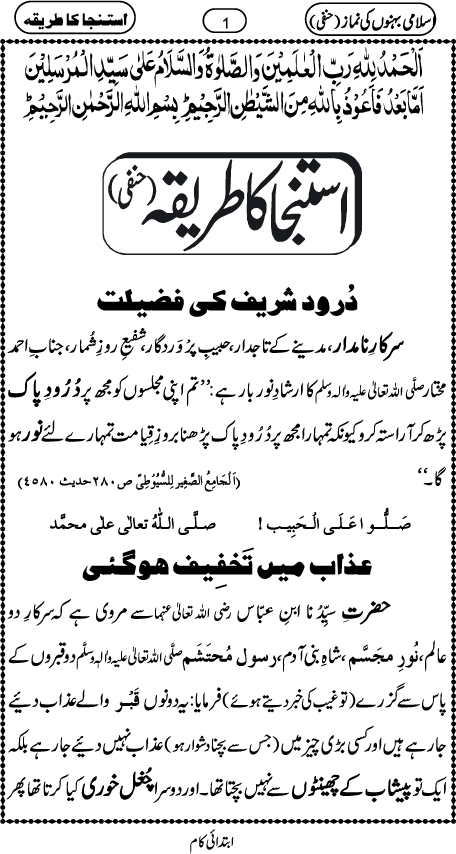 اسلامی بہنوں کی نماز (حنفی)
1
استنجا کا طریقہ
اَلْحَمْدُ لِلّٰہِ رَبِّ الْعٰلَمِیْنَ وَالصَّلٰوۃُ وَالسَّلَامُ عَلٰی سَیِّدِ الْمُرْسَلِیْنَ
اَمَّا بَعْدُ فَاَعُوْذُ بِاللہِ مِنَ الشَّیْطٰنِ الرَّجِیْمِ ؕ بِسْمِ اللہِ الرَّحْمٰنِ الرَّحِیْمِ ؕ
استنجا کا طریقہ (حنفی)
دُرود شریف کی فضیلت
سرکارِ نامدار، مدینے کے تاجدار، حبیبِ پَرْوَرْدگار، شفیعِ روزِ شُمار، جنابِ احمدِ
مختار صلَّی اللہ تعالیٰ علیہ واٰلہ وسلم کا ارشادِ نور بار ہے: ’’تم اپنی مجلسوں کو مجھ پر دُرُودِ پاک
پڑھ کر آراستہ کرو کیونکہ تمہارا مجھ پر دُرُودِ پاک پڑھنا بروزِ قِیامت تمہارے لئے نور ہو
گا۔‘‘ (اَلْجامِعُ الصَّغِیر لِلسُّیُوْطِیْ ص ۲۸۰ حدیث ۴۵۸۰)
صَلُّوا عَلَی الْحَبِیب! صلَّی اللّٰہُ تعالٰی علٰی محمَّد
عذاب میں تَخْفِیف ہو گئی
حضرتِ سیِّدُنا ابنِ عبّاس رضی اللہ تعالیٰ عنہما سے مروی ہے کہ سرکارِ دو
عالم، نُورِ مُجَسَّم، شاہِ بنی آدم، رسولِ مُحْتَشَم صلَّی اللہ تعالیٰ علیہ واٰلہ وسلَّم دو قبروں کے
پاس سے گزرے (تو غیب کی خبر دیتے ہوئے) فرمایا: یہ دونوں قَبْر والے عذاب دیئے
جا رہے ہیں اور کسی بڑی چیز میں (جس سے بچنا دشوار ہو) عذاب نہیں دیئے جا رہے بلکہ
ایک تو پیشاب کے چھینٹوں سے نہیں بچتا تھا۔ اور دوسرا چُغل خوری کیا کرتا تھا پھر
ابتدائی کام